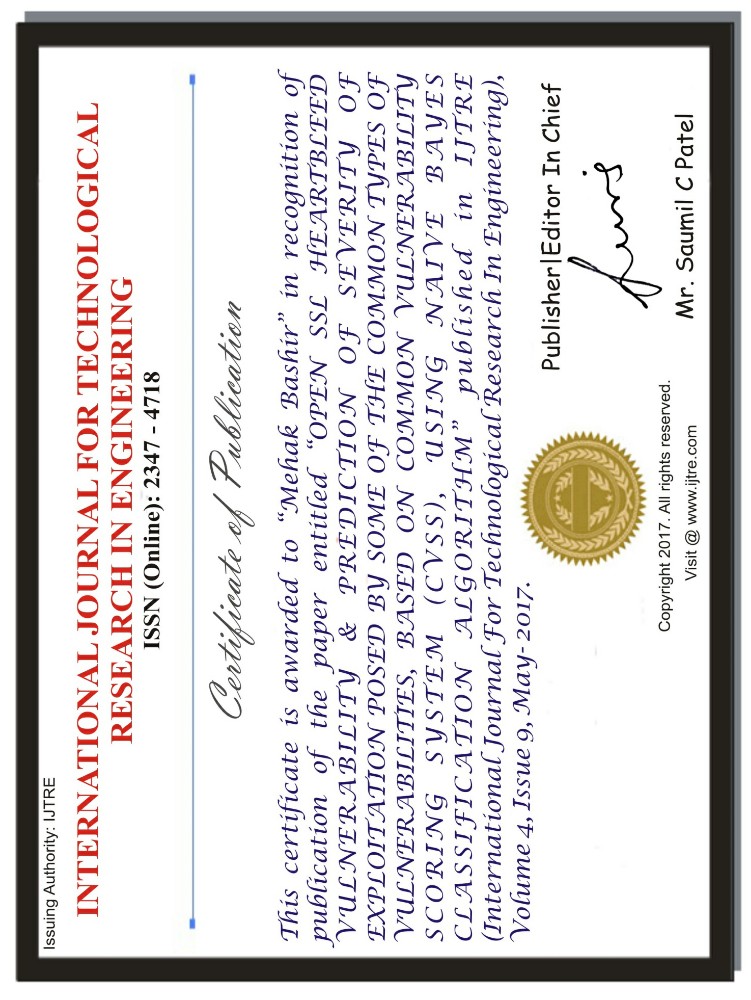 Issuing Authority: IJTRE
INTERNATIONAL JOURNAL FOR TECHNOLOGICAL
RESEARCH IN ENGINEERING
ISSN (Online): 2347 - 4718
Certificate of Publication
This certificate is awarded to “Mehak Bashir” in recognition of
publication of the paper entitled “OPEN SSL HEARTBLEED
VULNERABILITY & PREDICTION OF SEVERITY OF
EXPLOITATION POSED BY SOME OF THE COMMON TYPES OF
VULNERABILITIES, BASED ON COMMON VULNERABILITY
SCORING SYSTEM (CVSS), USING NAIVE BAYES
CLASSIFICATION ALGORITHM” published in IJTRE
(International Journal For Technological Research In Engineering),
Volume 4, Issue 9, May-2017.
Publisher|Editor In Chief
Mr. Saumil C Patel
Copyright 2017. All rights reserved.
Visit @ www.ijtre.com